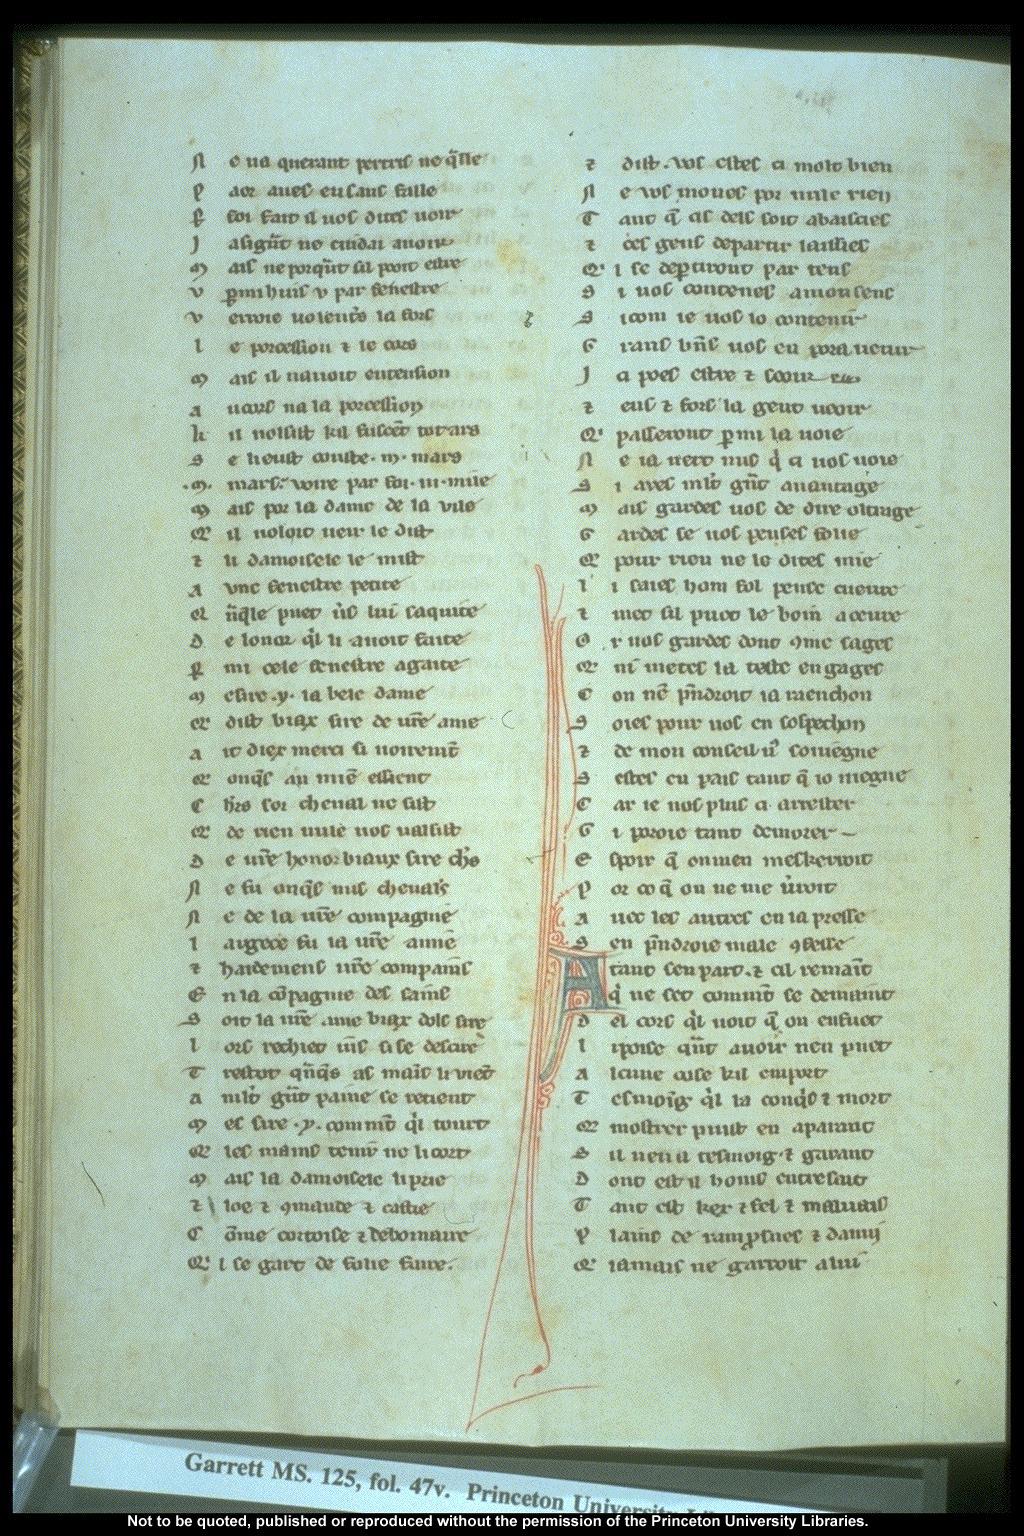 N e ua querant pertris ne q̃lle
P aor aues eu sans faille
P̱ foi fait il uos dites uoir
J asigñt ne cuidai auoir
M ais ne porq̃nt sil pooit estre
V p̱mi huis v par fenestre
V erroie uolent's la fors
L e porcession ⁊ le cors
M ais il nauoit entension
A uors na la porcession
K il nolsist kil fuscẽt tot ars
S e li eust couste .m. mars
.M. mars: voire par foi .iii. mile
M ais por la dame de la vile
Q'il uoloit ueir le dist
⁊ li damoisele le mist
A vne fenestre petite
D e lonor q'l li auoit faite
P̱ mi cele fenestre agaite
M esire .y. la bele dame
Q' dist biax sire de ur̃e ame
A it diex merci si uoiremẽt
Q' onq̃s au miẽ essient
C hr̃s sor cheual ne sist
Q' de rien nule uos ualsist
D e ur̃e honor biaux sire ch's
N e fu onq̃s nus cheualr̃s
N e de la ur̃e compagnie
L argece fu la ur̃e amie
⁊ hardemens ur̃e compaiñs
E n la cõpagnie des sains
S oit la ur̃e ame biax dols sire
L ors
T restot
A ml't gñt paine se retient
M es sire .y. commẽt q'l tourt
Q' les mains tenir ne li cort
M ais la damoisele li prie
⁊ loe ⁊ ꝯmande ⁊ castie
C õme cortoise ⁊ debonaire
Q' l se gart de folie faire.
⁊ dist. vos estes ci molt bien
N e vos moues por nule rien
T ant q̃ cis dels soit abaissies
⁊ ces gens departir laissies
Q' i se dep̱tiront par tens
S i uos contenes a mon sens
S icom ie uos lo contenir
G rans bñs uos en pora uenir
J ci poes estre ⁊ seoir
⁊ ens ⁊ fors la gent ueoir
Q' passeront p̱mi la uoie
N e ia nert nus q' ci uos uoie
S i aves ml't gñt auantage
M ais gardes uos de dire oltrage
G ardes se uos penses folie
Q' pour rien ne le dites mie
L i saies hom fol pense cueure
⁊ met sil puet le boin a oeure
O r uos gardes dont ꝯme sages
Q' ni metes la teste en gages
C on nẽ p̃ndroit ia raenchon
S oies pour uos en sospechon
⁊ de mon conseil u' souiẽgne
S estes en pais tant q̃ io viegne
C ar ie nos plus ci arrester
G i poroie tant demorer
E spoir q̃ on men meskerroit
P or co q̃ on ne me uerroit
A uec les autres en la presse
S en p̃ndroie male ꝯfesse
A tant sen part. ⁊ cil remait
q' ne set commẽt se demaint
D el cors q'l uoit q̃ on enfuet
L ipoise qñt auoir nen puet
A lcune cose kil emport
T esmoig q'l la conq's ⁊ mort
Q' mostrer puist en aparant
S il nen a tesmoig ⁊ garant
D ont est il honis entresait
T ant est kex ⁊ fel ⁊ maluais
P lains de ramposnes ⁊ danui
Q' iamais ne garroit a lui
Garrett MS. 125, fol. 47v. Princeton University
Not to be quoted, published or reproduced without the permission of the Princeton University Libraries.